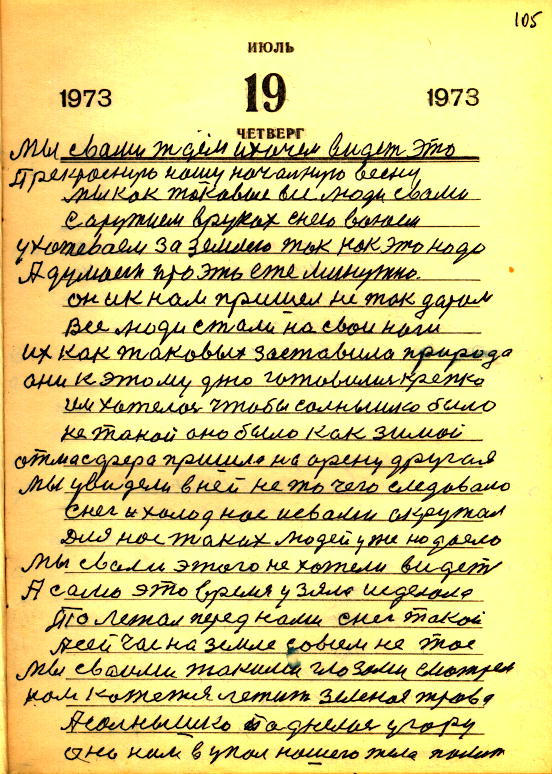 105
ИЮЛЬ
1973 19 1973
ЧЕТВЕРГ
Мы свами ждем и хочем видет это
Прекрасную нашу началную весну
мы как таковые все люди свами
Саружием вруках снею воюем
ухажеваем за землею так как это надо
А думаем про эта ежеминутно.
он и к нам пришел не так даром
Все люди стали на свои ноги
их как таковых заставила природа
они к этому дню готовилися крепко
им хателося чтобы солнышко было
не такой оно было как зимой
атмасфера пришла на арену другая
Мы увидели вней не то чего следовало
снег и холод нас исвами окружал
Для нас таких людей уже надаело
Мы свами этого не хотели видеть
А само это время узяло изделало
То лежал перед нами снег такой
Асейчас на земле совсем не тое
Мы своими такими глазами смотрем
нам кажется лезит зеленая трава
Асолнышко паднелося угору
оно нам в упал нашего тела палит